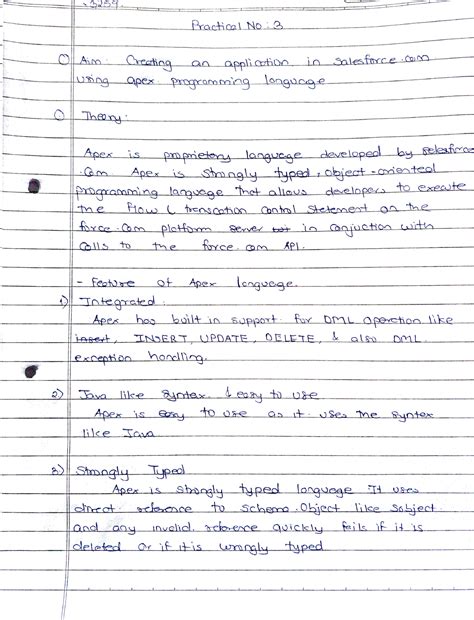 Practical No: 3
Aim: Creating an application in Salesforce.com
using apex programming language
Theory:
Apex is proprietery language developed by salesforce
.com Apex is strongly typed, object-oriented
programming language that allows developers to execute
the Flow & transcation control statement on the
force.com platform server in conjuction with
calls to the force.com API.
- Feature of Apex language.
1) Integrated:
Apex has built in support for DML operation like
insert, INSERT, UPDATE, DELETE, & also DML
exception handling.
2) Java like syntax & easy to use
Apex is easy to use as it uses the syntax
like Java
3) Strongly Typed
Apex is strongly typed language It uses
direct reference to schema Object like sobject
and any invalid reference quickly fails if it is
deleted or if it is wrongly typed